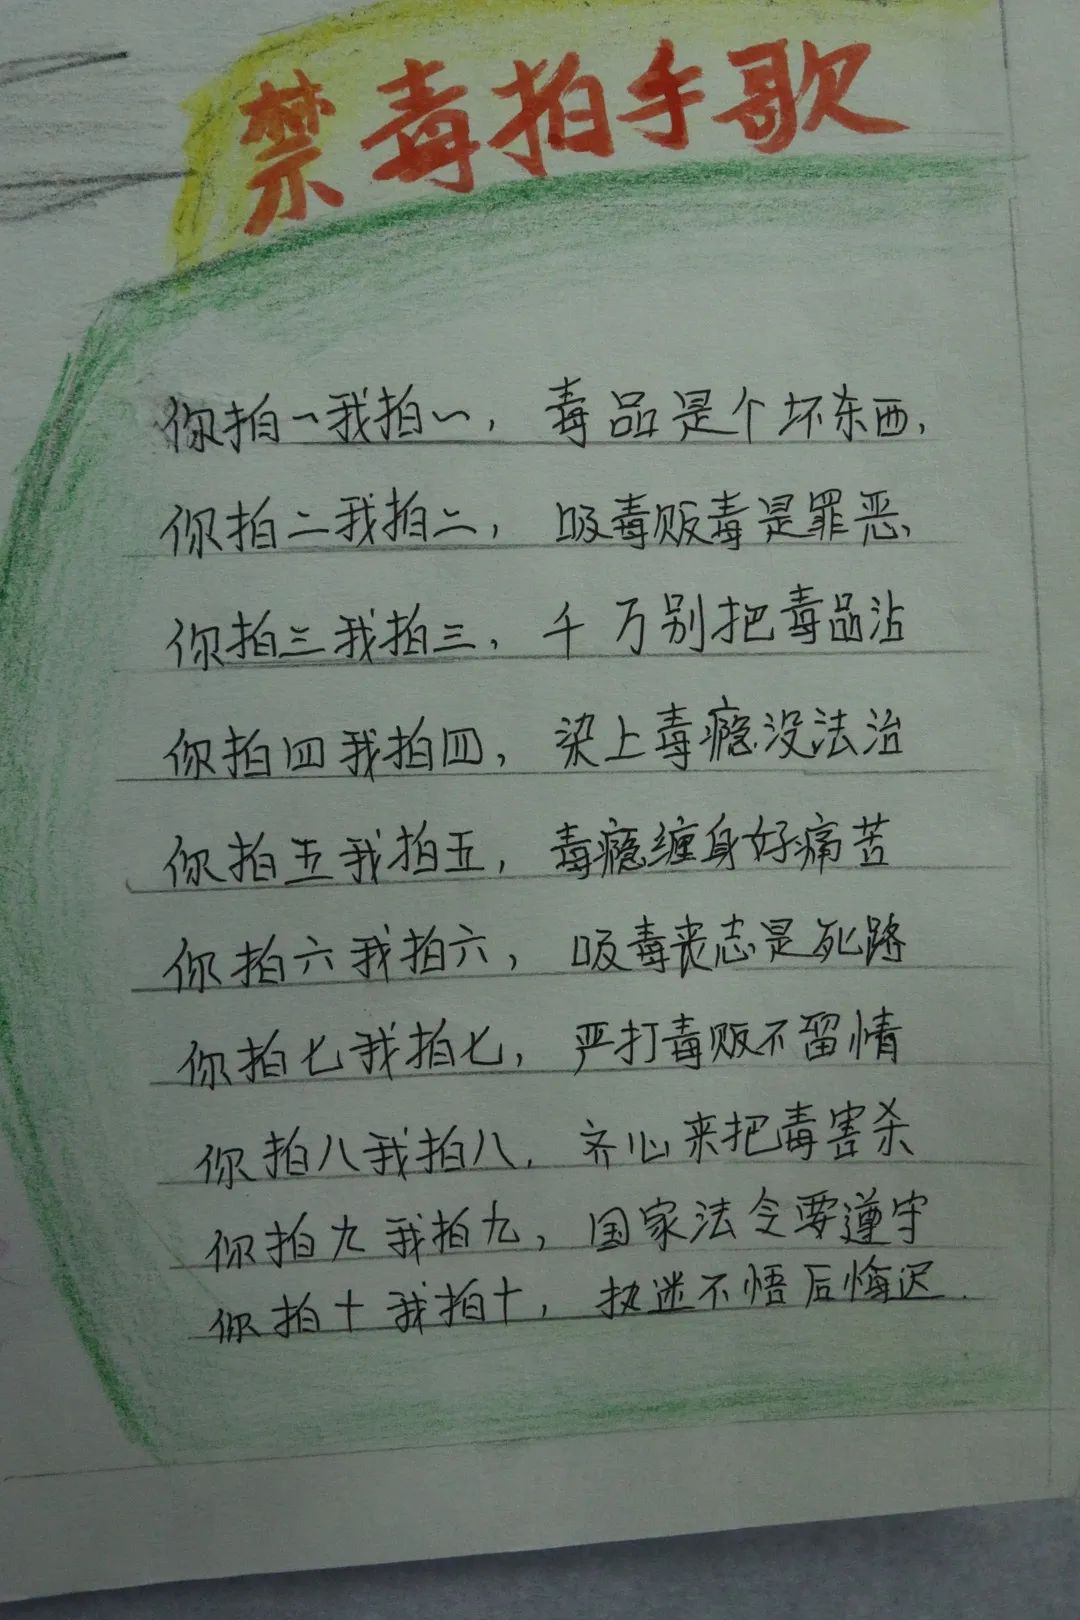 禁毒拍手歌
你拍一我拍一，毒品是个坏东西，
你拍二我拍二，吸毒贩毒是罪恶，
你拍三我拍三，千万别把毒品沾
你拍四我拍四，染上毒瘾没法治
你拍五我拍五，毒瘾缠身好痛苦
你拍六我拍六，吸毒丧志是死路
你拍七我拍七，严打毒贩不留情
你拍八我拍八，齐心来把毒害杀
你拍九我拍九，国家法令要遵守
你拍十我拍十，执迷不悟后悔迟.